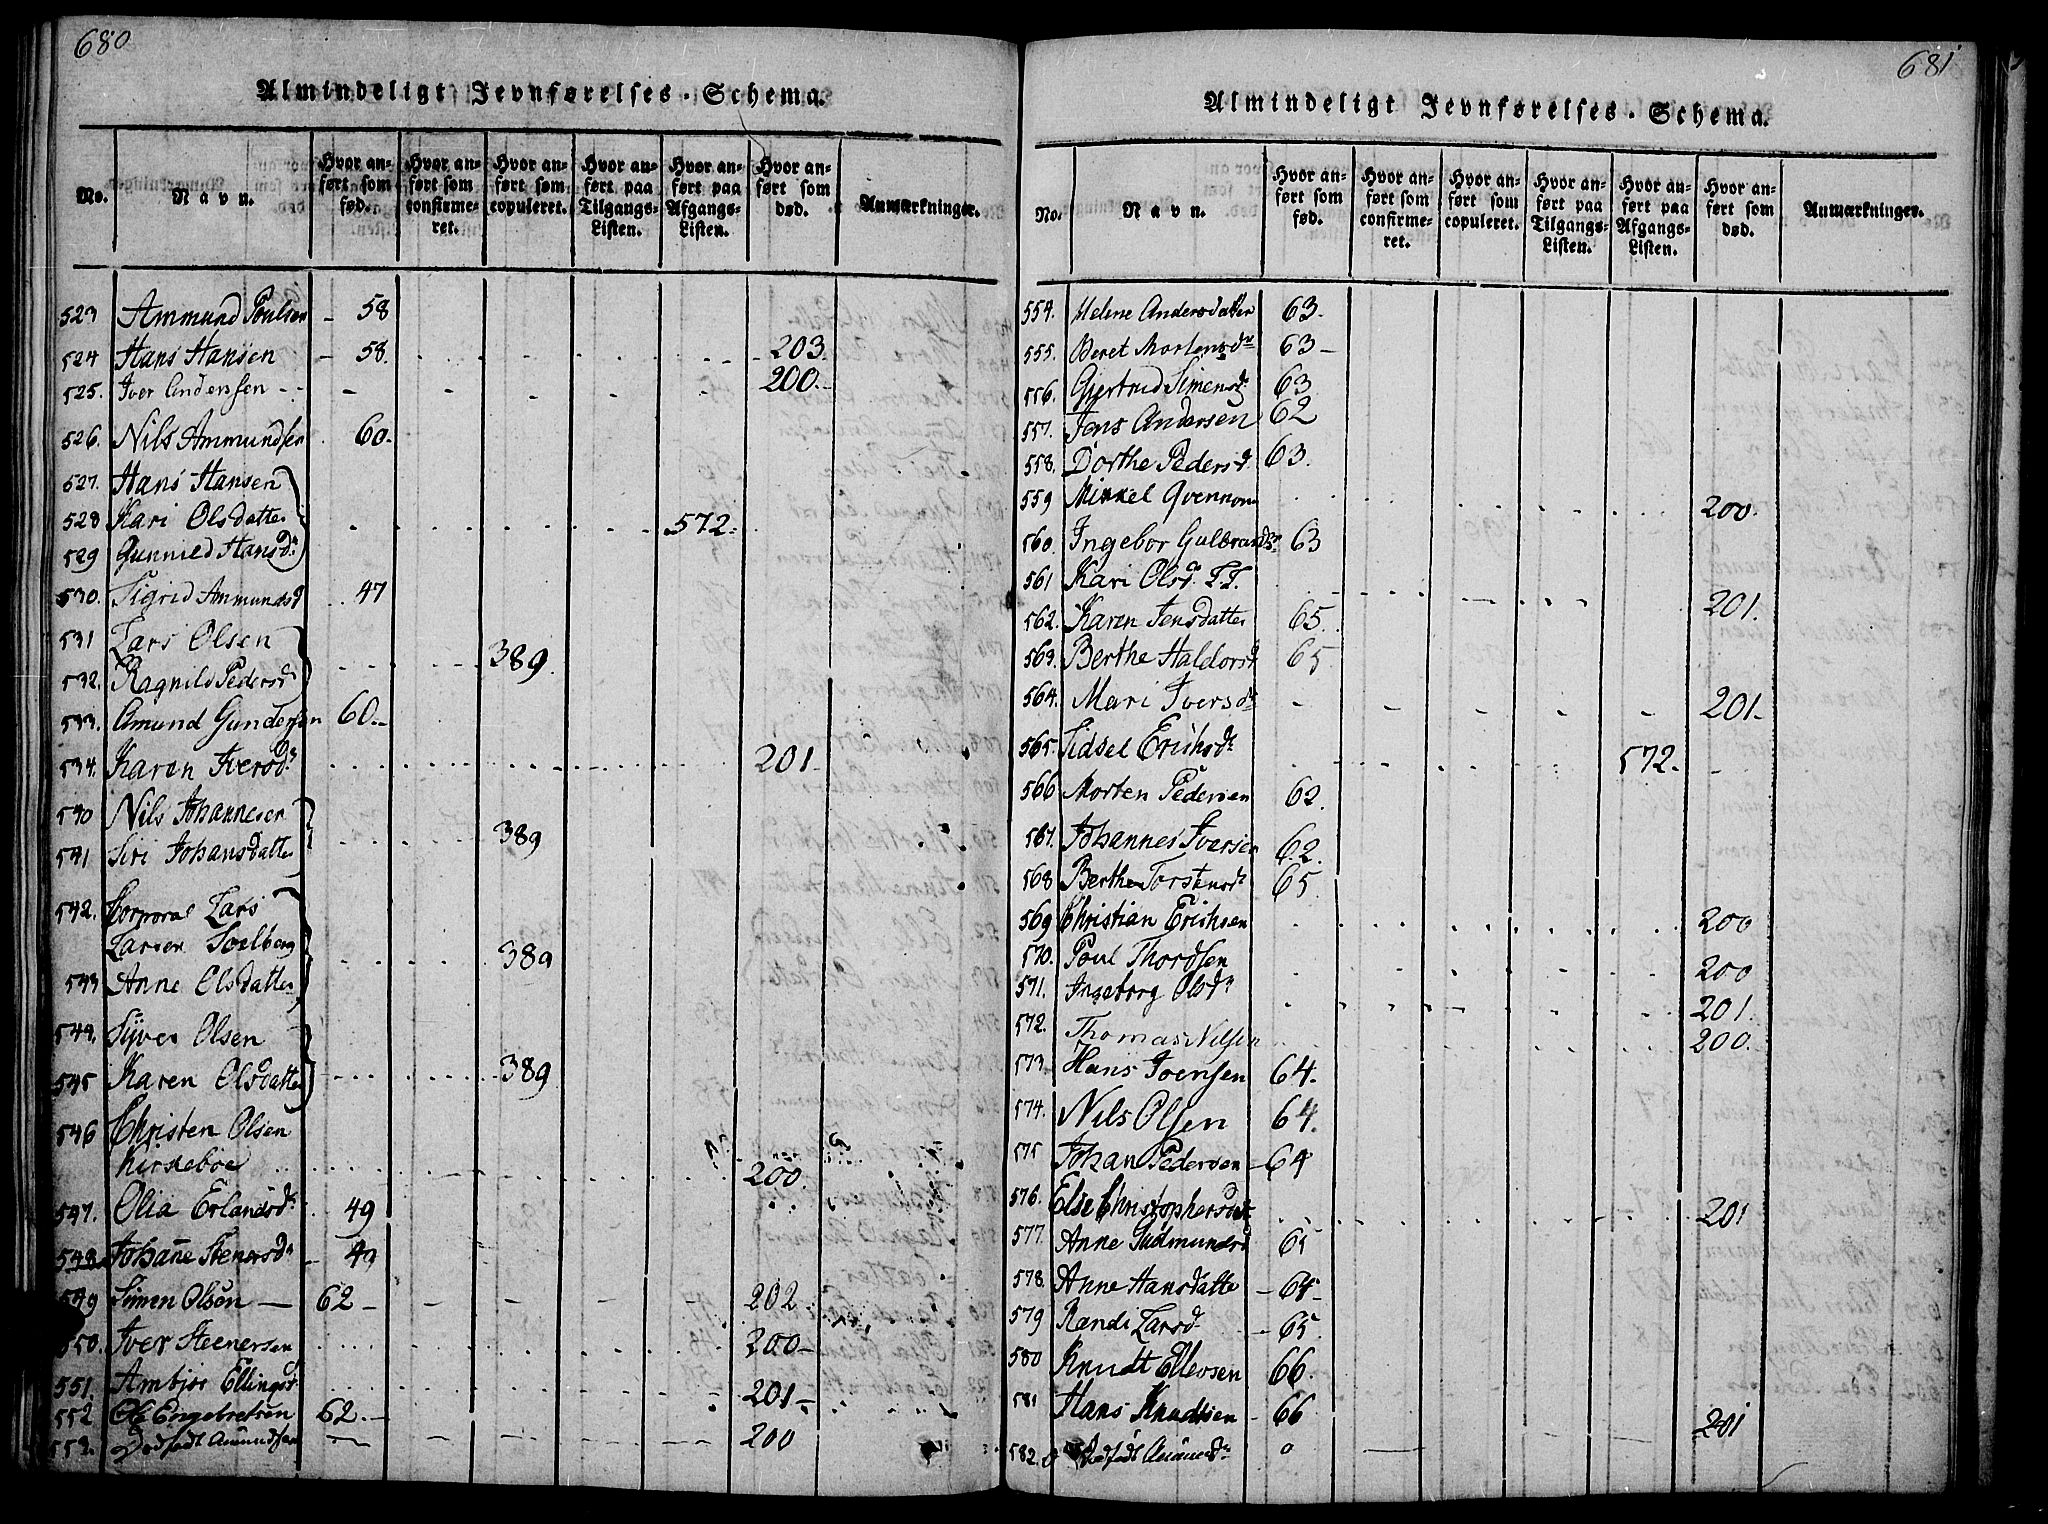 680
Almindeligt Jevnførelses-Schema.
No. Navn. Hvor anført som fød. Hvor anført som confirmeret. Hvor anført som copuleret. Hvor anført paa Tilgangs-Listen. Hvor anført paa Afgangs-Listen. Hvor anført som død. Anmærkninger.
523 Ammund Poulsen - 58
524 Hans Hansen - 58. 203.
525. Iver Anderssen - - 200.
526. Nils Ammundsen 60.
527. Hans Hansen
528 Kari Olsdatter 572.
529 Gunnild Hansd.
530. Sigrid Ammundsd 47
531 Lars Olsen
532. Ragnild Pedersd 389.
533. Amund Gundersen 60.
534. Karen Iversd. 201
540 Nils Johannesen
541 Siri Johansdatter 389
542. Corporal Lars
Larsen Soelberg
543 Anne Olsdatter 389
544. Syver Olsen
545 Karen Olsdatter 389
546 Christen Olsen
Kirkeboe 200.
547. Olia Erlandsd. 49
548. Johañe Stenersd - 49
549 Simen Olsen — 62 - 202
550. Iver Steenersen 200-
551. Ambjør Ellingsd. 201-
552 Ole Engebretsen 62.
553. Dødfødt Amundsen 200
681
Almindeligt Jevnførelses-Schema.
No. Navn. Hvor anført som fød. Hvor anført som confirmeret. Hvor anført som copuleret. Hvor anført paa Tilgangs-Listen. Hvor anført paa Afgangs-Listen. Hvor anført som død. Anmærkninger.
554. Helene Andersdatter 63.
555. Beret Mortensdr 63-
556. Gjertrud Simensd. 63.
557. Jens Andersen 62
558. Dorthe Pedersd. 63.
559 Mikkel Qvennom 200.
560. Ingebor Gulbrandsdr 63
561 Kari Olsd. T.T. 201.
562. Karen Jensdatter 65.
563. Berthe Haldorsd 65
564. Mari Iversd. 201-
565. Sidsel Erichsd. 572.
566 Morten Pedersen 62.
567. Johannes Iversen 62.
568 Berthe Torstensd. 65.
569 Christian Erichsen 200
570. Poul Thordsen 200
571. Ingeborg Olsd. 201.
572. Thomas Nilsen 200.
573. Hans Joensen 64.
574. Nils Olsen 64.
575 Johan Pedersen - 64
576. Else Christophersdatter 201
577. Anne Gudmundsd 65
578. Anne Hansdatte - 64-
579 Randi Larsd. - 65.
580 Knudt Ellevsen 66.
581 Hans Knudtsen - 66
582. Dødfødt 201